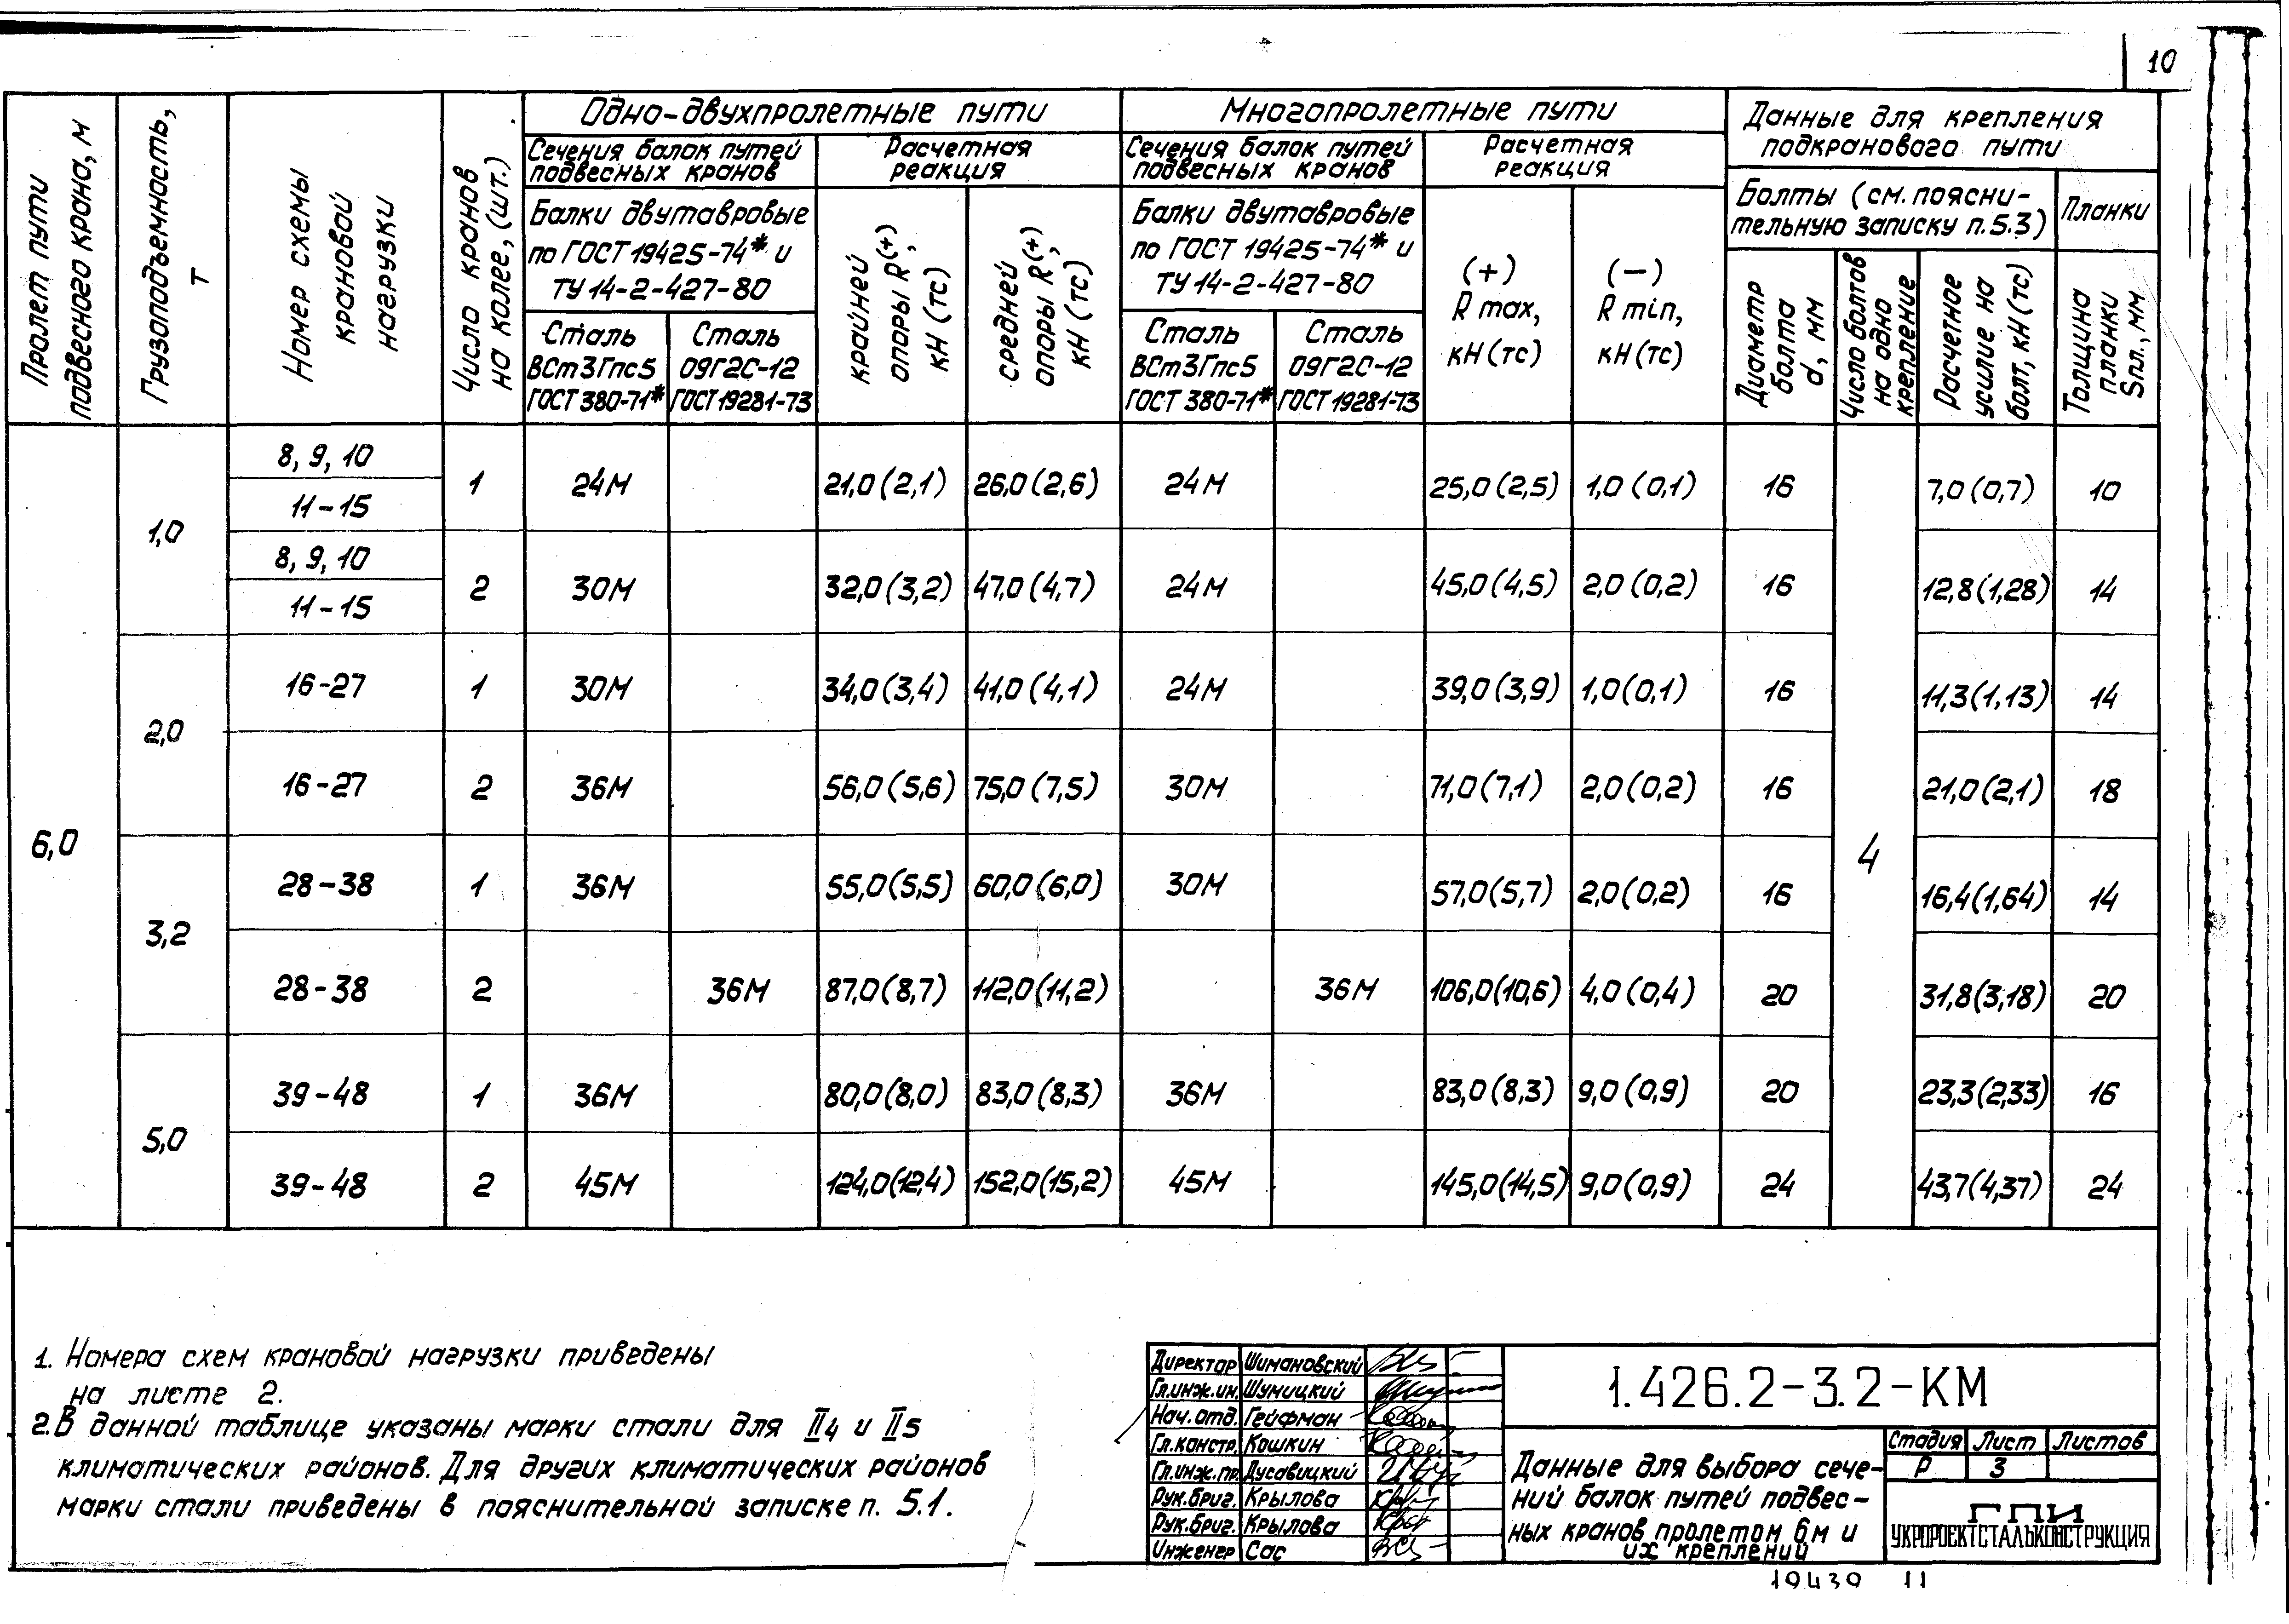 10
Пролет пути подвесного крана, м
Грузоподъемность, т
Номер схемы крановой нагрузки
Число кранов на колее, (шт.)
Одно-двухпролетные пути
Сечения балок путей
подвесных кранов
Балки двутавровые
по ГОСТ 19425-74* и
ТУ 14-2-427-80
Сталь
ВСт3Гпс5
ГОСТ 380-71*
Сталь
09Г2С-12
ГОСТ 19281-73
Расчетная
реакция
крайней опоры R(+), кН (тс)
средней опоры R(+), кН (тс)
Многопролетные пути
Сечения балок путей
подвесных кранов
Балки двутавровые
по ГОСТ 19425-74* и
ТУ 14-2-427-80
Сталь
ВСт3Гпс5
ГОСТ 380-71*
Сталь
09Г2С-12
ГОСТ 19281-73
Расчетная
реакция
(+)
R max,
кН (тс)
(-)
R min,
кН (тс)
Данные для крепления
подкранового пути
Болты (см. поясни-
тельную записку п.5.3)
Планки
Диаметр болта d, мм
Число болтов на одно крепление
Расчетное усилие на болт, кН (тс)
Толщина планки Sпл., мм
6,0
4
1,0
8, 9, 10
11-15
1 24М 21,0(2,1) 26,0(2,6) 24М 25,0(2,5) 1,0(0,1) 16 7,0(0,7) 10
8, 9, 10
11-15
2 30М 32,0(3,2) 47,0(4,7) 24М 45,0(4,5) 2,0(0,2) 16 12,8(1,28) 14
2,0
16-27 1 30М 34,0(3,4) 41,0(4,1) 24М 39,0(3,9) 1,0(0,1) 16 11,3(1,13) 14
16-27 2 36М 56,0(5,6) 75,0(7,5) 30М 71,0(7,1) 2,0(0,2) 16 21,0(2,1) 18
3,2
28-38 1 36М 55,0(5,5) 60,0(6,0) 30М 57,0(5,7) 2,0(0,2) 16 16,4(1,64) 14
28-38 2 36М 87,0(8,7) 112,0(11,2) 36М 106,0(10,6) 4,0(0,4) 20 31,8(3,18) 20
5,0
39-48 1 36М 80,0(8,0) 83,0(8,3) 36М 83,0(8,3) 9,0(0,9) 20 23,3(2,33) 16
39-48 2 45М 124,0(12,4) 152,0(15,2) 45М 145,0(14,5) 9,0(0,9) 24 43,7(4,37) 24
1. Номера схем крановой нагрузки приведены
на листе 2.
2. В данной таблице указаны марки стали для II4 и II5
климатических районов. Для других климатических районов
марки стали приведены в пояснительной записке п. 5.1.
Директор Шимановский
Гл.инж.ин. Шумицкий
Нач.отд. Гейфман
Гл.констр. Кошкин
Гл.инж.пр. Дусавицкий
Рук.бриг. Крылова
Рук.бриг. Крылова
Инженер Сас
1.426.2-3.2-КМ
Данные для выбора сече-
ний балок путей подвес-
ных кранов пролетом 6м и
их креплений
Стадия Лист Листов
Р 3
ГПИ
УКРПРОЕКТСТАЛЬКОНСТРУКЦИЯ
19439 11